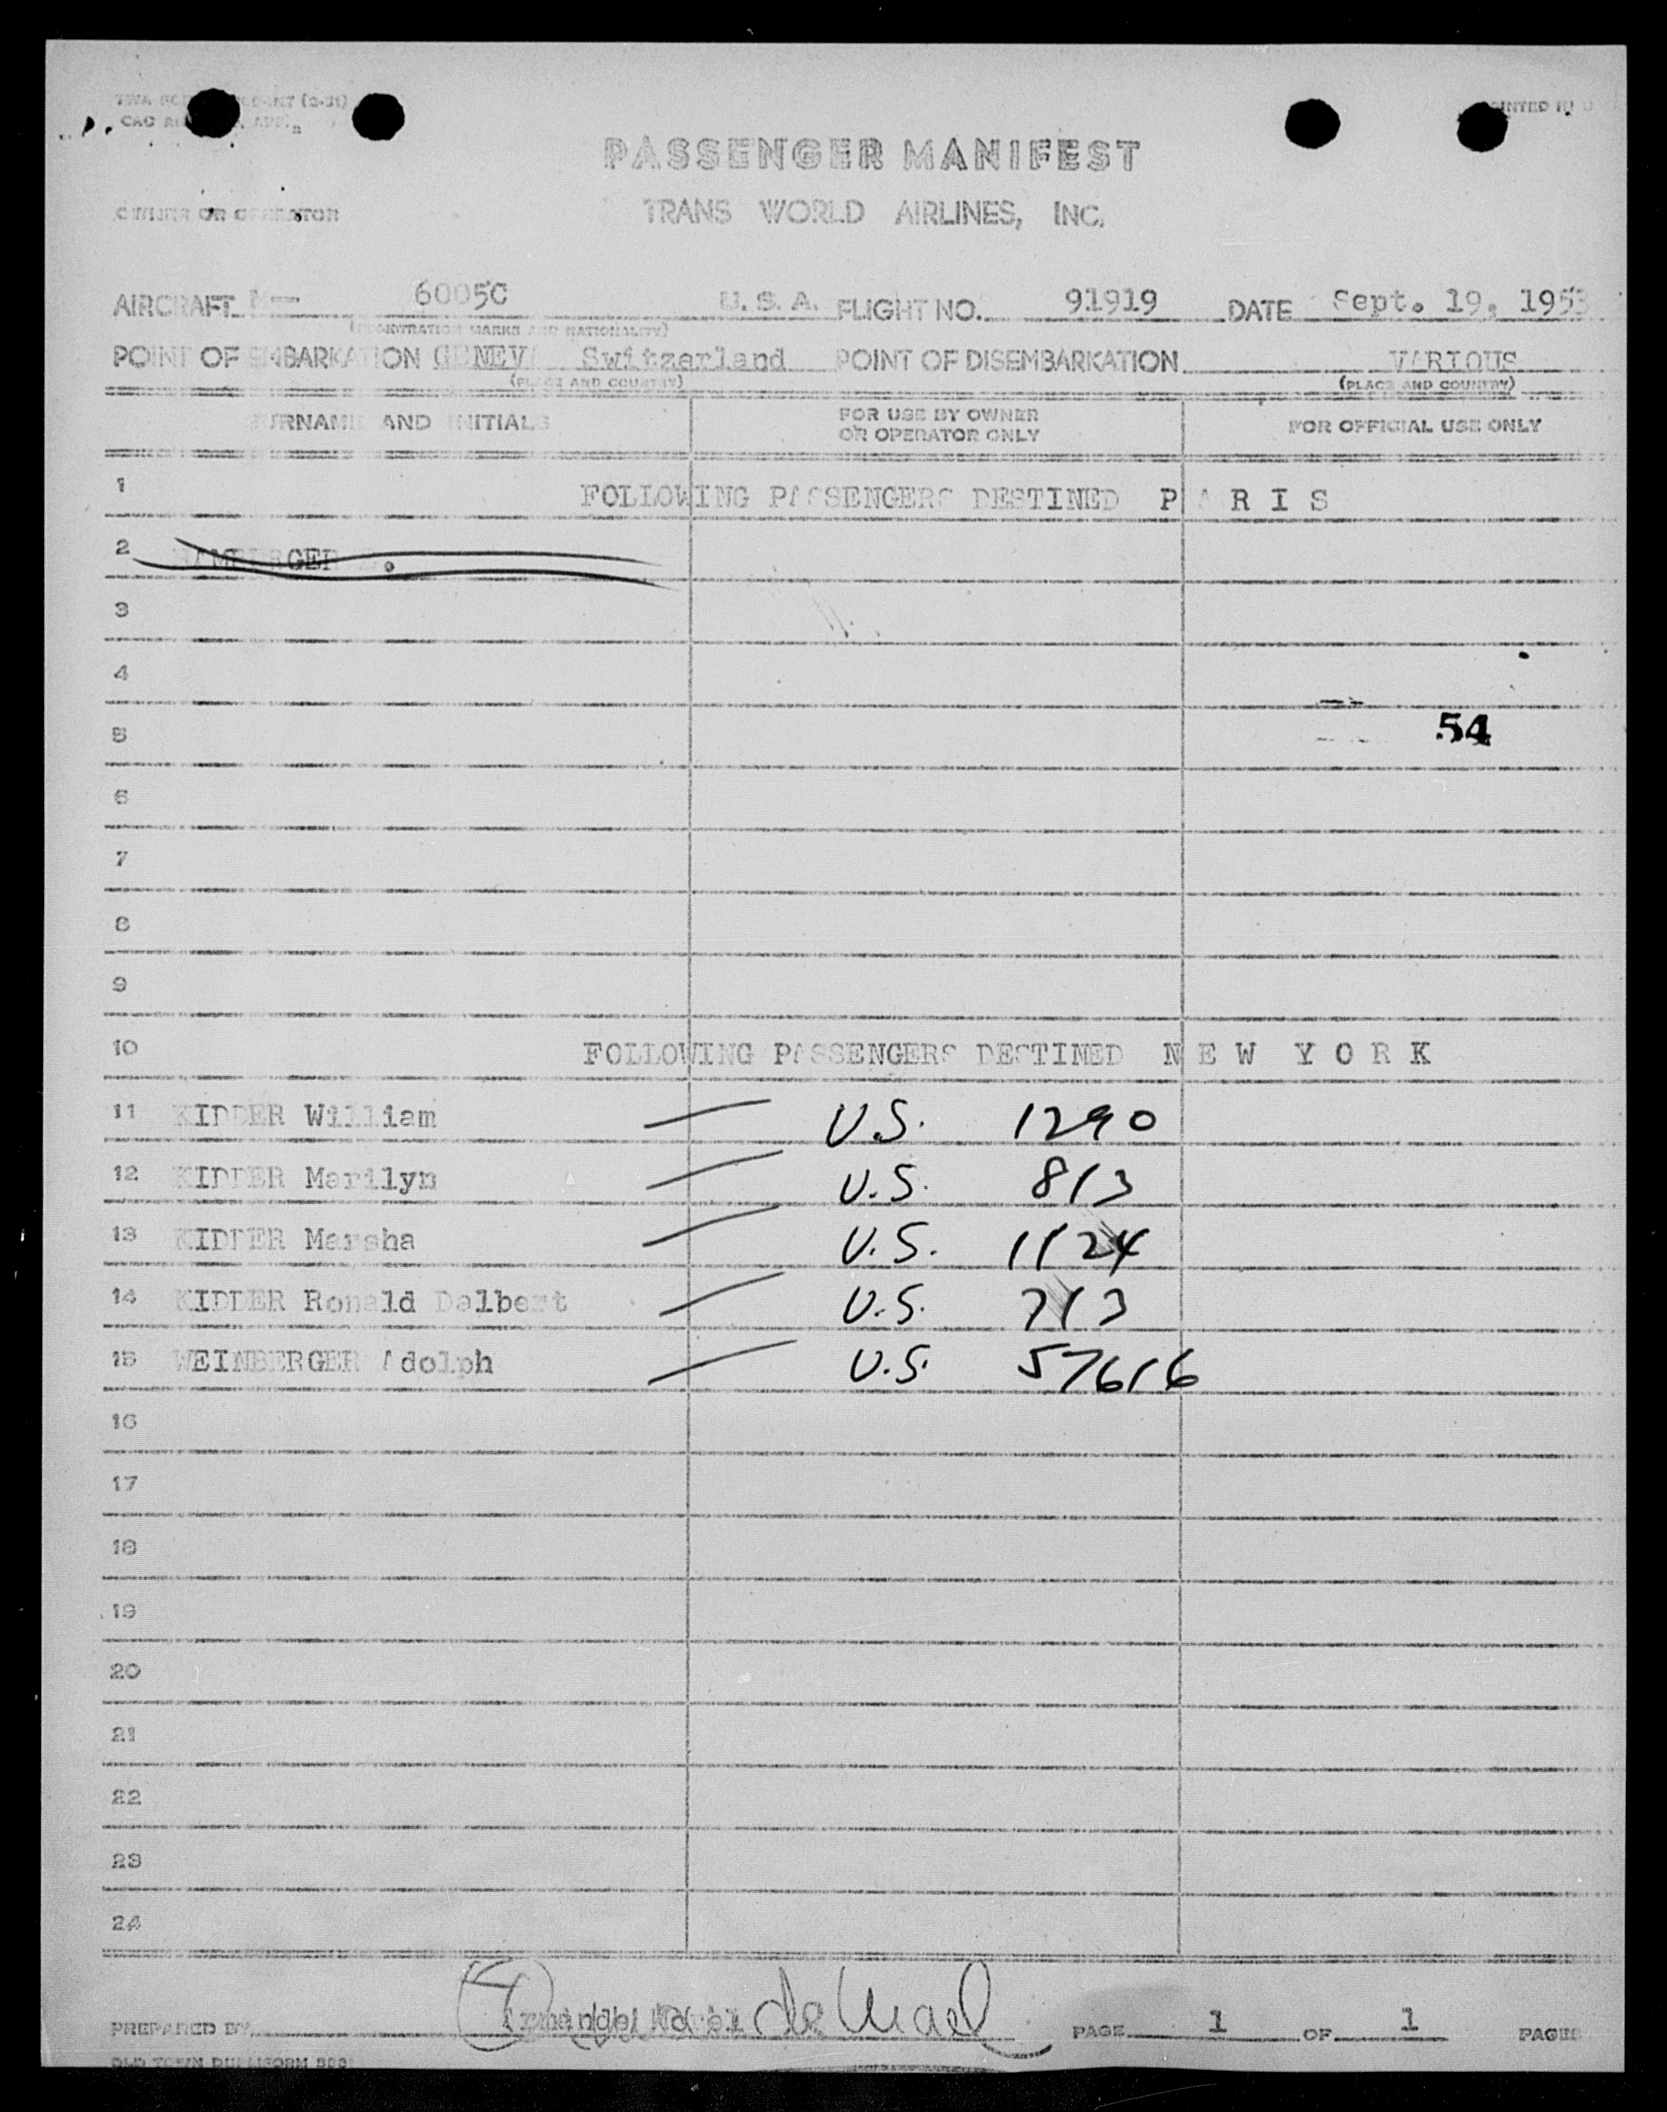 PRINTED IN U
PASSENGER MANIFEST
OWNER OR OPERATOR TRANS WORLD AIRLINES, INC.
AIRCRAFT N- 6005C U.S.A. FLIGHT NO. 91919 DATE Sept. 19, 1953
(REGISTRATION MARKS AND NATIONALITY)
POINT OF EMBARKATION GENEVA Switzerland POINT OF DISEMBARKATION VARIOUS
(PLACE AND COUNTRY) (PLACE AND COUNTRY)
SURNAME AND INITIALS FOR USE BY OWNER OR OPERATOR ONLY FOR OFFICIAL USE ONLY
1 FOLLOWING PASSENGERS DESTINED P A R I S
2
3
4
5 54
6
7
8
9
10 FOLLOWING PASSENGERS DESTINED N E W Y O R K
11 KIDDER William U.S. 1290
12 KIDDER Marilyn U.S. 813
13 KIDDER Marsha U.S. 1124
14 KIDDER Ronald Dalbert U.S. 713
15 WEINBERGER Adolph U.S. 57616
16
17
18
19
20
21
22
23
24
PREPARED BY PAGE 1 OF 1 PAGES